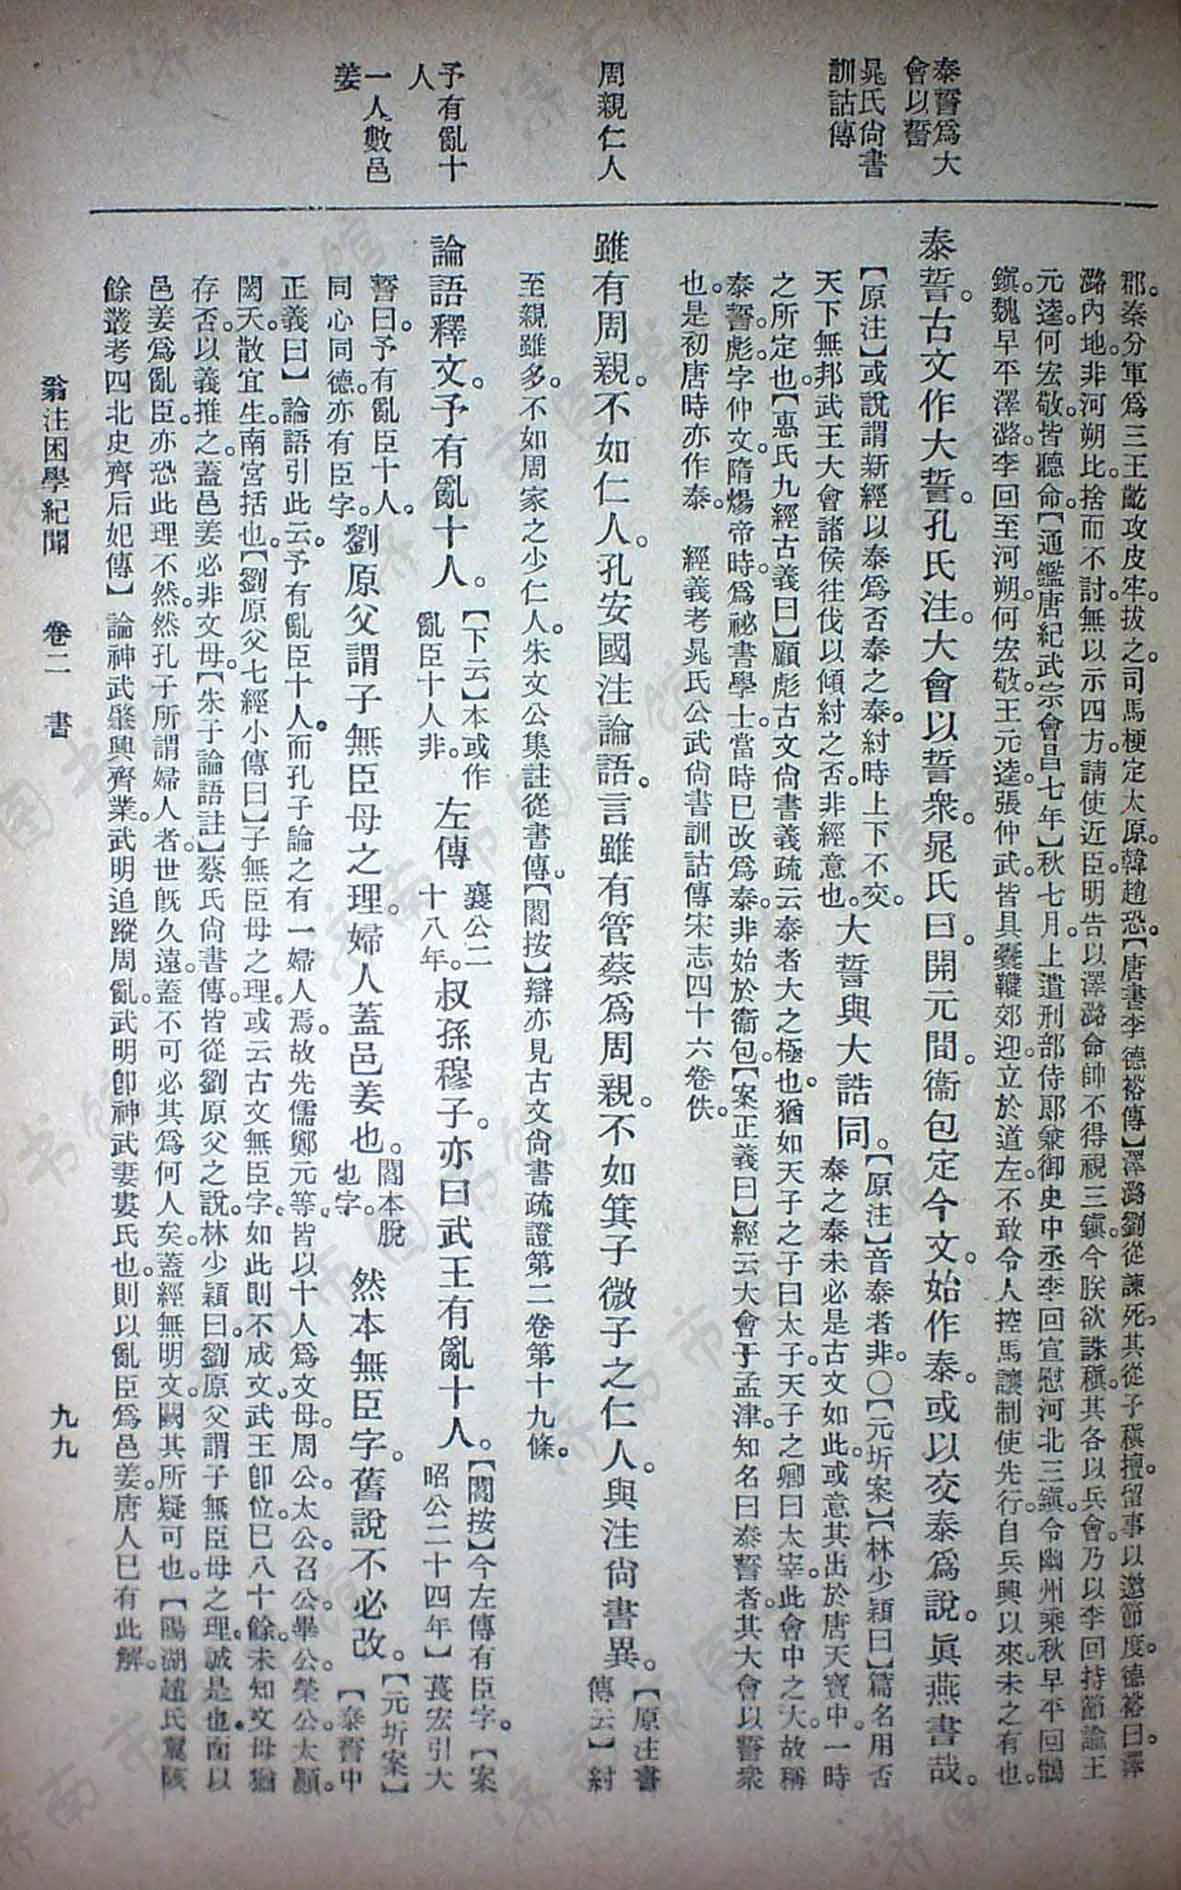 泰誓爲大
會以誓
晁氏尙書
訓詁傳
周親仁人
予有亂十
人
一人數邑
姜
郡。秦分軍爲三。王酖攻皮牢。拔之。司馬梗定太原。韓趙恐。【唐書李德裕傳】澤潞劉從諫死。其從子稹。擅留事。以邀節度。德裕曰。澤
潞內地。非河朔比。捨而不討。無以示四方。請使近臣明告以澤潞命帥不得視三鎭。今朕欲誅稹。其各以兵會。乃以李回持節諭王
元逵。何宏敬。皆聽命。【通鑑唐紀武宗會昌七年】秋七月。上遣刑部侍郞兼御史中丞李回宣慰河北三鎭。令幽州乘秋早平回鶻
鎭。魏早平澤潞。李回至河朔。何宏敬。王元逵。張仲武。皆具櫜鞬郊迎。立於道左。不敢令人控馬。讓制使先行。自兵興以來。未之有也。
泰誓。古文作大誓。孔氏注。大會以誓衆。晁氏曰。開元間。衞包定今文。始作泰。或以交泰爲說。眞燕書哉。
【原注】或說謂新經以泰爲否泰之泰。紂時上下不交。
天下無邦。武王大會諸侯往伐以傾紂之否。非經意也。大誓與大誥同。【原注】音泰者非。○【元圻案】【林少穎曰】篇名用否
泰之泰。未必是古文如此。或意其出於唐天寶中。一時
之所定也。【惠氏九經古義曰】顧彪古文尙書義疏云。泰者大之極也。猶如天子之子曰太子。天子之卿曰太宰。此會中之大。故稱
泰誓。彪字仲文。隋煬帝時。爲祕書學士。當時已改爲泰。非始於衞包。【案正義曰】經云。大會于孟津。知名曰泰誓者。其大會以誓衆
也。是初唐時亦作泰。　經義考晁氏公武尙書訓詁傳宋志四十六卷佚。
雖有周親。不如仁人。孔安國注論語。言雖有管蔡爲周親。不如箕子微子之仁人。與注尙書異。【原注書
傳云】紂
至親雖多。不如周家之少仁人。朱文公集註從書傳。【閻按】辯亦見古文尙書疏證第二卷第十九條。
論語釋文。予有亂十人。【下云】本或作
亂臣十人非。左傳襄公二
十八年。叔孫穆子。亦曰武王有亂十人。【閻按】今左傳有臣字。【案
昭公二十四年】萇宏引大
誓曰。予有亂臣十人。
同心同德。亦有臣字。劉原父謂子無臣母之理。婦人蓋邑姜也。閻本脫
也字。然本無臣字。舊說不必改。【元圻案】
【泰誓中
正義曰】論語引此云。予有亂臣十人。而孔子論之有一婦人焉。故先儒鄭元等。皆以十人爲文母。周公。太公。召公。畢公。榮公。太顚。
閎夭。散宜生。南宮括也。【劉原父七經小傳曰】子無臣母之理。或云古文無臣字。如此則不成文。武王卽位。巳八十餘。未知文母猶
存否。以義推之。蓋邑姜必非文母。【朱子論語註】蔡氏尙書傳。皆從劉原父之說。林少穎曰。劉原父謂子無臣母之理。誠是也。而以
邑姜爲亂臣。亦恐此理不然。然孔子所謂婦人者。世旣久遠。蓋不可必其爲何人矣。蓋經無明文。闕其所疑可也。【陽湖趙氏翼陔
餘叢考四北史齊后妃傳】論神武肇興齊業。武明追蹤周亂。武明卽神武妻婁氏也。則以亂臣爲邑姜。唐人巳有此解。
翁注困學紀聞　卷二　書　九九